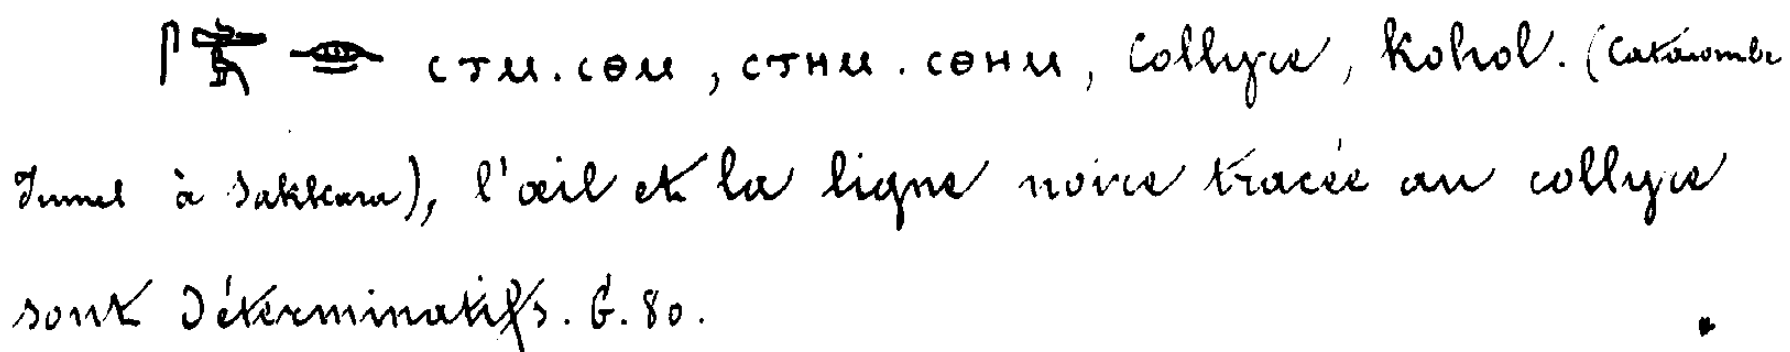 ⲥⲧⲙ . ⲥⲑⲙ , ⲥⲧⲏⲙ . ⲥⲑⲏⲙ , Collyre , Kohol . (Catacombe
Tunnel à Sakkara), l'œil et la ligne noire tracée au collyre
sont déterminatifs. G. 80.